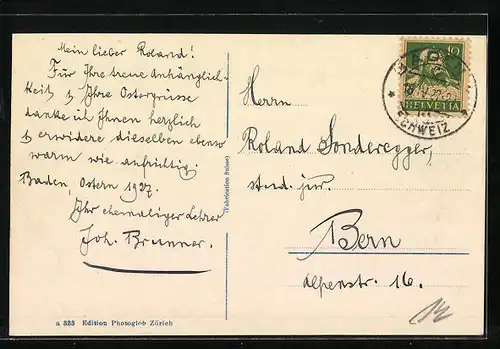 Mein lieber Roland!
Für Ihre treue Anhänglich-
keit & Ihre Ostergrüsse
danke ich Ihnen herzlich
& erwidere dieselben ebenso
warm wie aufrichtig.
Baden, Ostern 1927.
Ihr ehemaliger Lehrer
Joh. Brunner.
a 333 Edition Photoglob Zürich
(Fabrication Suisse)
10
HELVETIA
SCHWEIZ
Herrn
Roland Sonderegger,
stud. jur.
Bern
Alpenstr. 16.